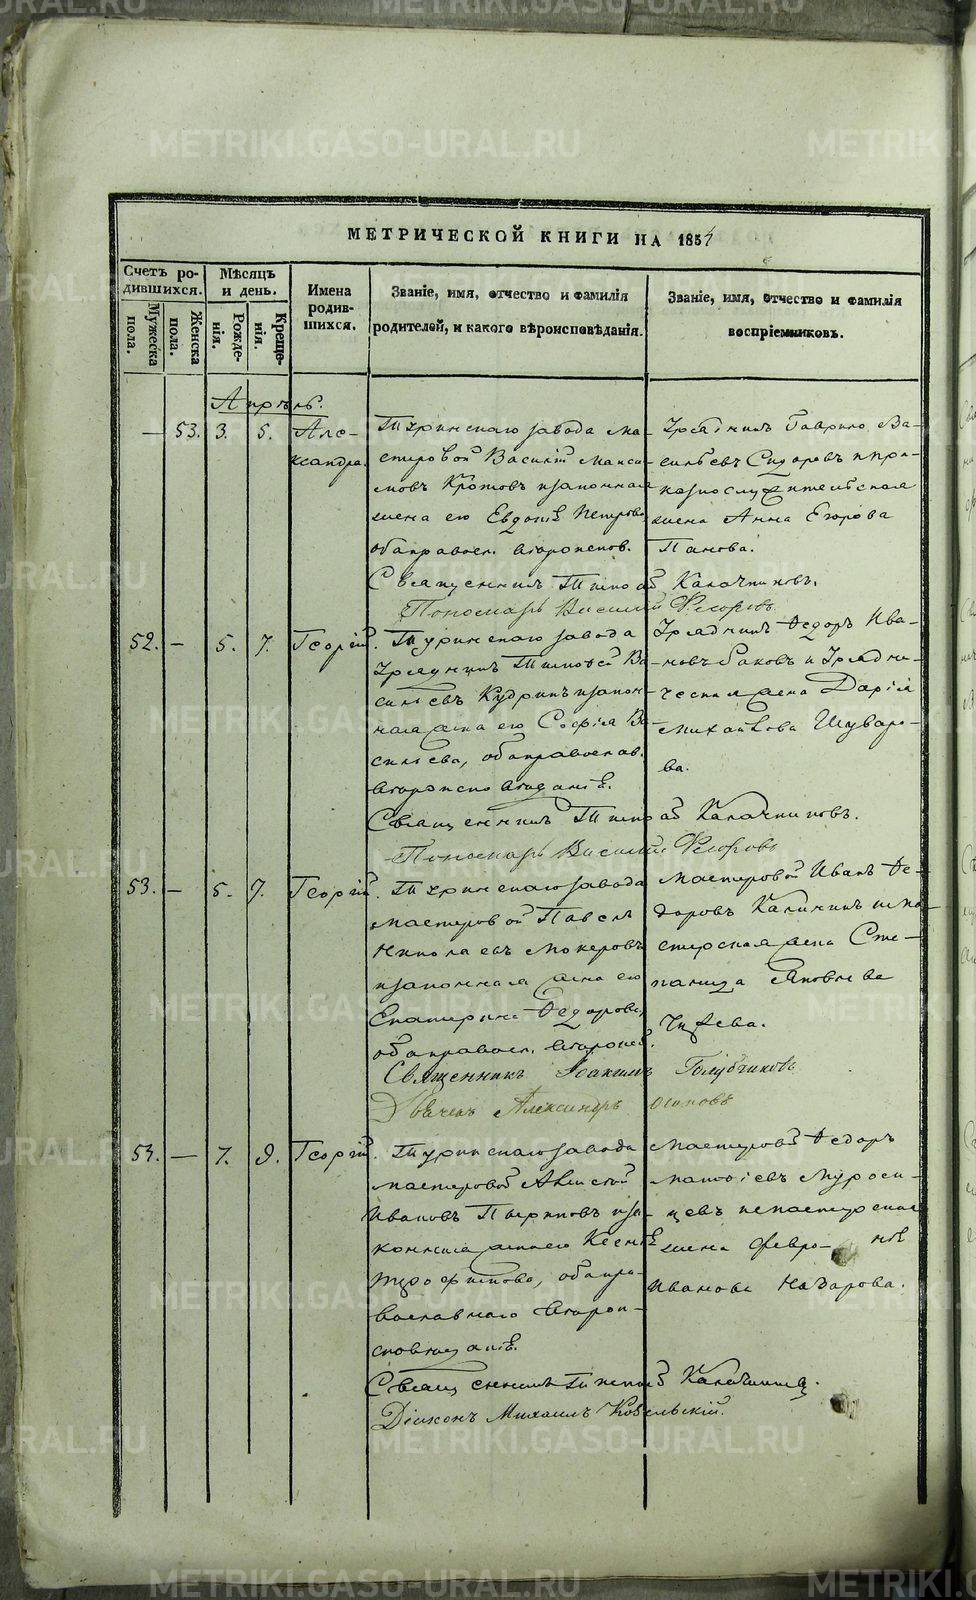 METRIKI.GASO-URAL.RU
МЕТРИЧЕСКОЙ КНИГИ НА 1854
Счетъ родившихся.
Мужеска пола.
Женска пола.
Мѣсяцъ и день.
Рожденія.
Крещенія.
Имена родившихся.
Званіе, имя, отчество и фамилія
родителей, и какого вѣроисповѣданія.
Званіе, имя, отчество и фамилія
воспріемниковъ.
Апрѣль.
— 53. 3. 5. Александра.
Туринскаго завода ма-
стеровой Василій Макси-
мовъ Кротовъ и законная
жена его Евдокія Петрова
оба правосл. вѣроисповѣд.
Урядникъ Гаврило Ва-
сильевъ Сидоровъ и при-
казнослужительская
жена Анна Егорова
Панова.
Священникъ Тимофей Калачниковъ.
Пономарь Василій Федоровъ
52. — 5. 7. Георгій.
Туринскаго завода
Урядникъ Тимофей Ва-
сильевъ Кудринъ и закон-
ная жена его Софія Ва-
сильева, оба православ.
вѣроисповѣданія.
Урядникъ Ѳедоръ Ива-
новъ и Урядни-
ческая жена Дарія
Михайлова Шуваро-
ва.
Священникъ Тимофей Калачниковъ.
Пономарь Василій Федоровъ
53. — 5. 7. Георгій.
Туринскаго завода
мастеровой Павелъ
Николаевъ Мокеровъ
и законная жена его
Екатерина Ѳедорова,
оба правосл. вѣроиспов.
Мастеровой Иванъ Ѳе-
доровъ Калининъ и ма-
стерская жена Сте-
панида Яковлева
Священникъ Іоакимъ Голубчиковъ
Дьячекъ Александръ Осиповъ
54. — 7. 9. Георгій.
Туринскаго завода
мастеровой Алексѣй
Ивановъ и за-
конная жена его Ксенія
Трофимова, оба пра-
вославнаго вѣроис-
повѣданія.
Мастеровой Ѳедоръ
и мастерская
жена Февронія
Иванова Назарова.
Священникъ Тимофей Калачниковъ.
Діаконъ Михаилъ Ковельскій.